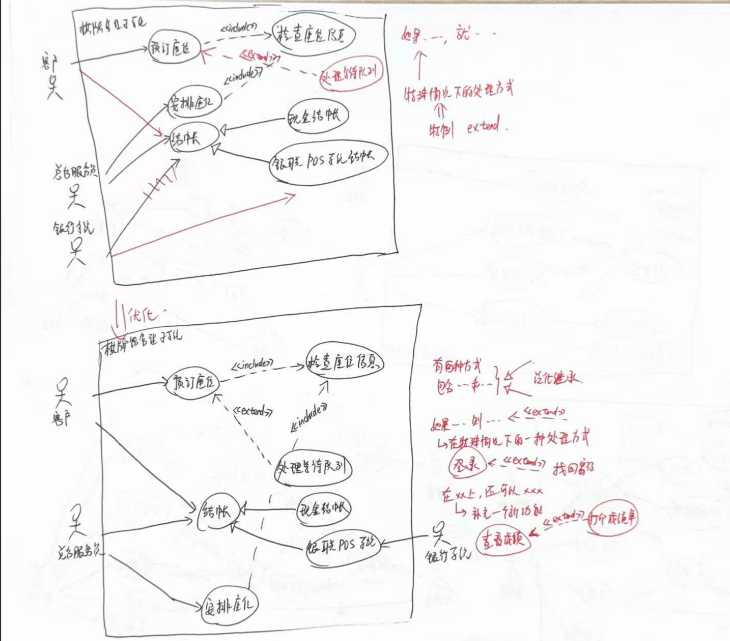 棋牌馆管理子系统
预订座位
<<include>>
检查座位信息
如果…，就…
客户
<<extend>>
处理等待队列
<<include>>
特殊情况下的处理方式
安排座位
特例 extend.
现金结帐
结帐
总台服务员
银联POS系统结帐
银行系统
优化.
棋牌馆管理子系统
<<include>>
检查座位信息
有两种方式
包含…和…
泛化继承
预订座位
客户
<<extend>>
<<include>>
如果…则…
<<extend>>
在特殊情况下的一种处理方式
处理等待队列
登录
<<extend>>
找回密码
在xx上，还可以xxx
结帐
现金结帐
补充一个新功能
银联POS系统
总台服务员
银行系统
查看成绩
<<extend>>
打印成绩单
安排座位